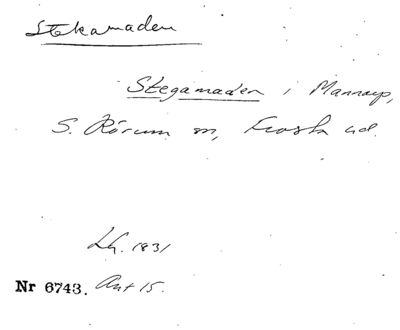 Stekamaden
Stegamaden i Mannarp,
S. Rörum sn, Frosta hd.
Lh. 1831
Nr 6743. Ant 15.